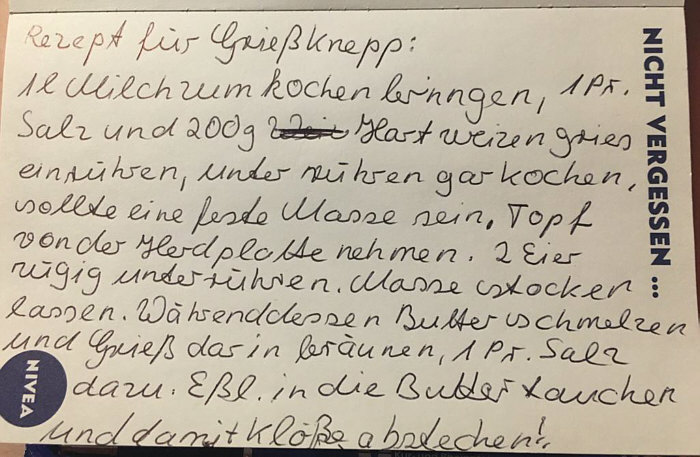 Rezept für Grießknepp:
1l Milch zum kochen bringen, 1 Pr.
Salz und 200g Hartweizengries
einrühren, unter rühren gar kochen,
sollte eine feste Masse sein. Topf
von der Herdplatte nehmen. 2 Eier
zügig unterrühren. Masse stocken
lassen. Währenddessen Butter schmelzen
und Grieß darin bräunen, 1 Pr. Salz
dazu. Eßl. in die Butter tauchen
und damit Klöße abstechen!
NICHT VERGESSEN ...
NIVEA